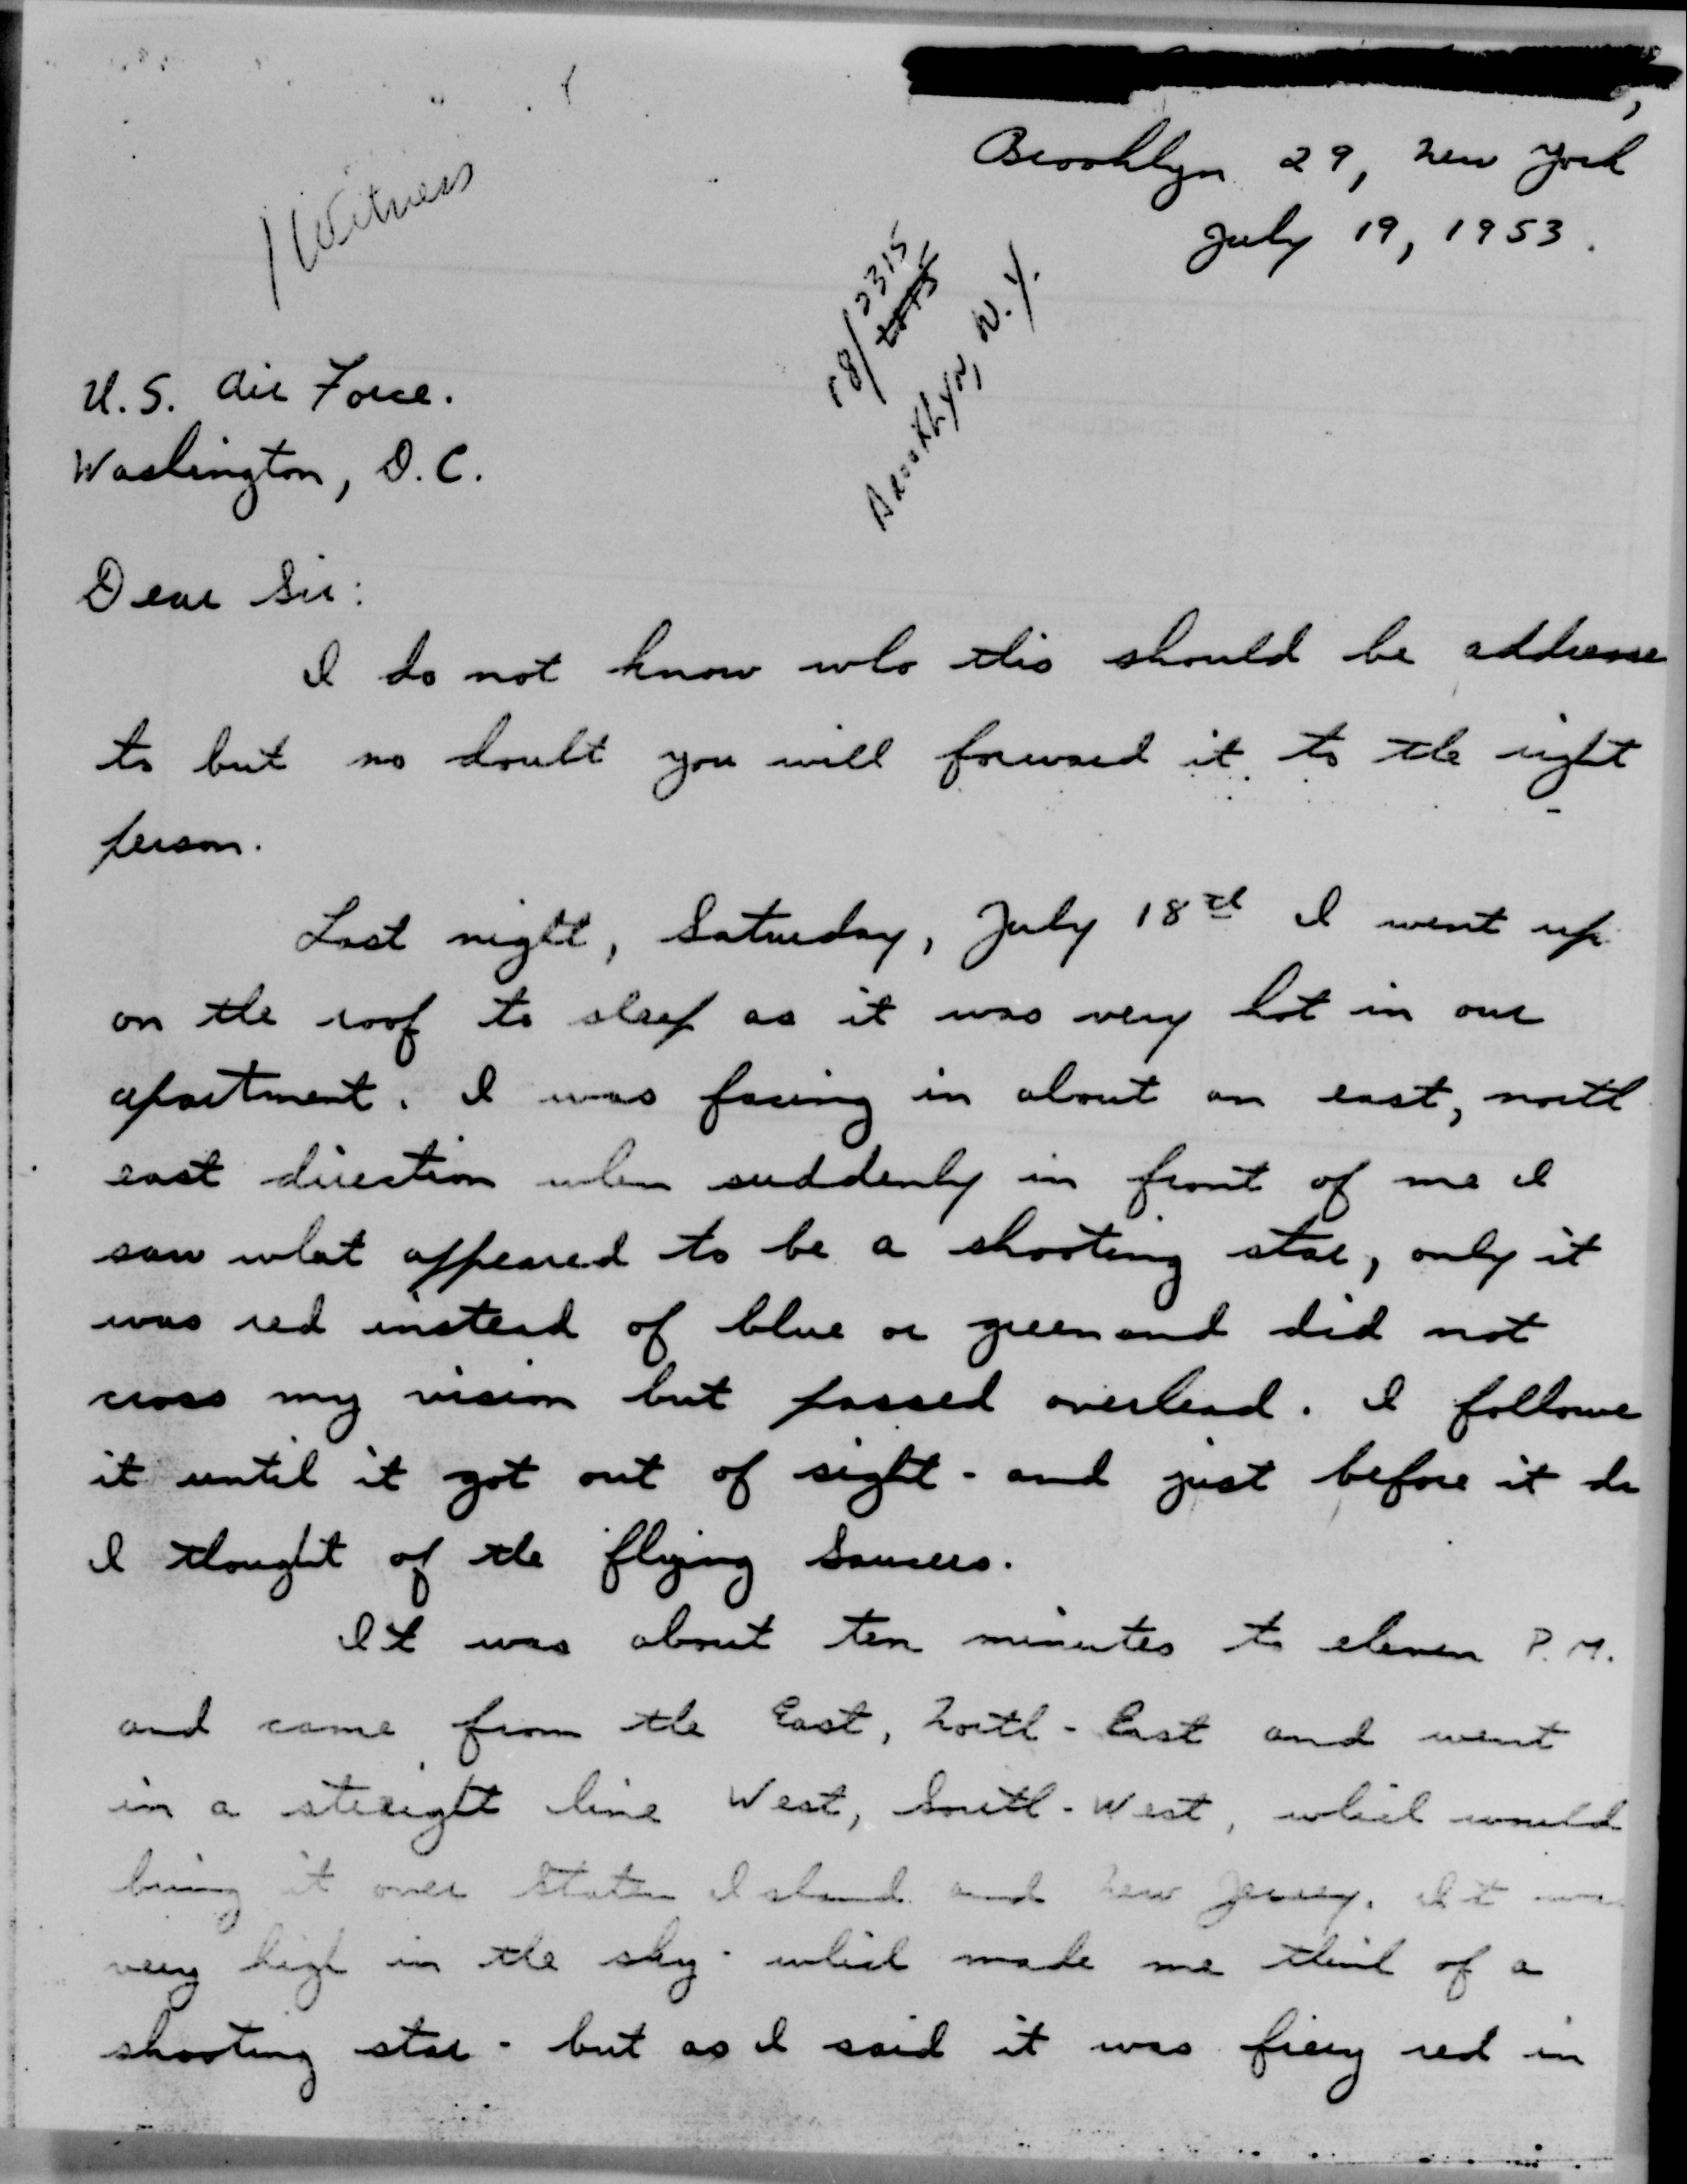 Brooklyn 29, New York
July 19, 1953.
1 Witness
18/2315
Brooklyn, N.Y.
U.S. Air Force.
Washington, D.C.
Dear Sir:
I do not know who this should be addresse
to but no doubt you will forward it to the right
person.
Last night, Saturday, July 18th I went up
on the roof to sleep as it was very hot in our
apartment. I was facing in about an east, north
east direction when suddenly in front of me I
saw what appeared to be a shooting star, only it
was red instead of blue or green and did not
cross my vision but passed overhead. I followe
it until it got out of sight - and just before it di
I thought of the flying Saucers.
It was about ten minutes to eleven P.M.
and came from the East, North-East and went
in a streight line West, South-West, which would
bring it over Staten Island and New Jersey. It wa
very high in the sky - which made me think of a
shooting star - but as I said it was fiery red in